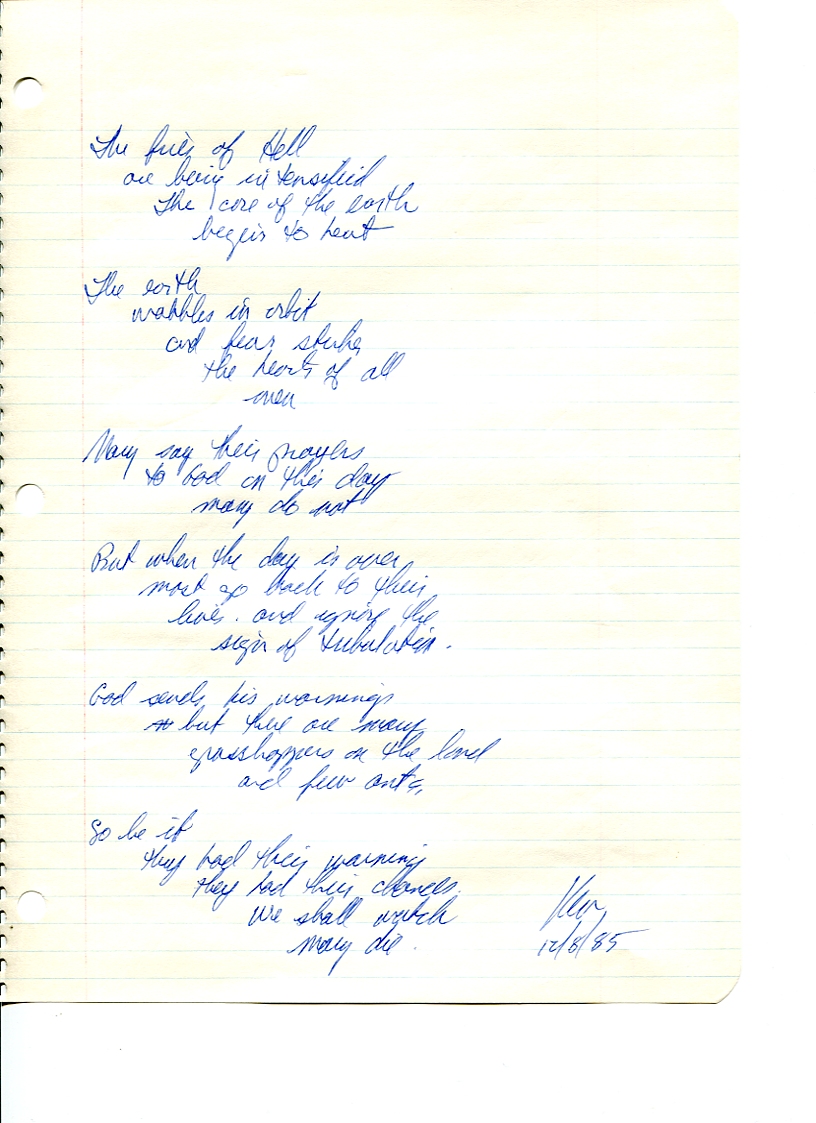 The fires of Hell
are being intensified
The core of the earth
begins to heat
The earth
wobbles in orbit
and fear strikes
the hearts of all
men
Many say their prayers
to God on this day
many do not
But when the day is over
most go back to their
lives. and ignore the
sign of tribulation.
God sends his warnings
but there are many
grasshoppers on the land
and few ants,
So be it
they had their warning
they had their chances.
We shall watch
many die.
12/8/85